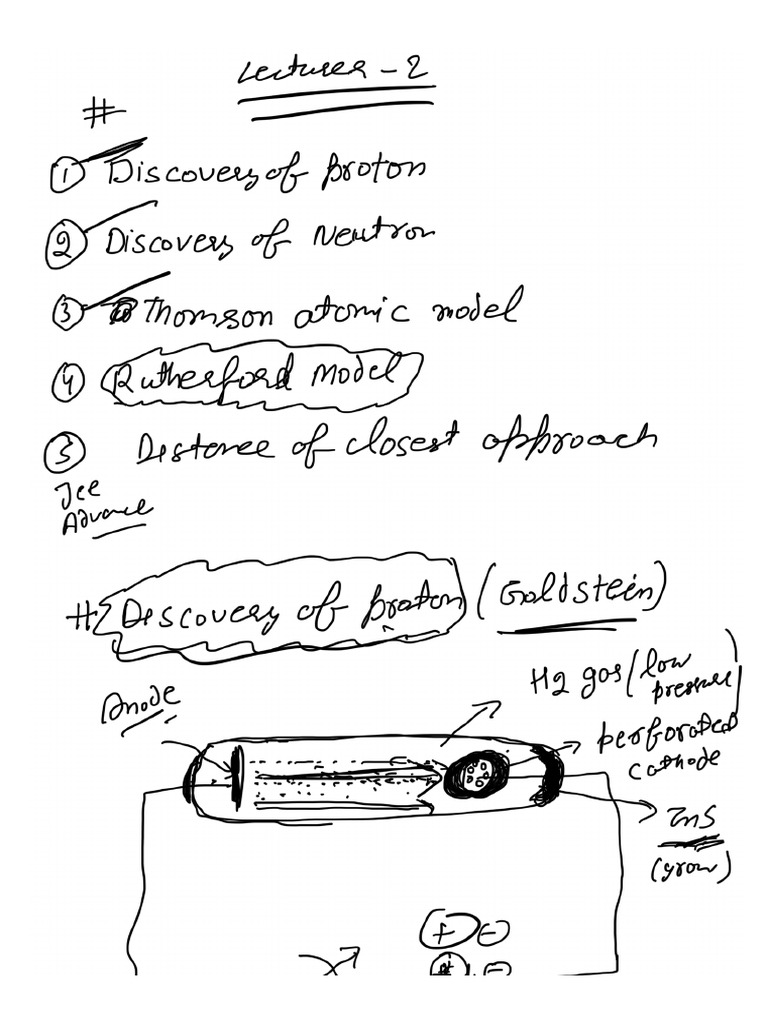 Lectures - 2
#
① Discovery of Proton
② Discovery of Neutron
③ Thomson atomic model
④ Rutherford Model
⑤ Distance of closest approach
Jee
Advance
# Discovery of proton (Goldstein)
Anode
H2 gas (low pressure)
perforated
cathode
ZnS
(grow)
+ -
+ -